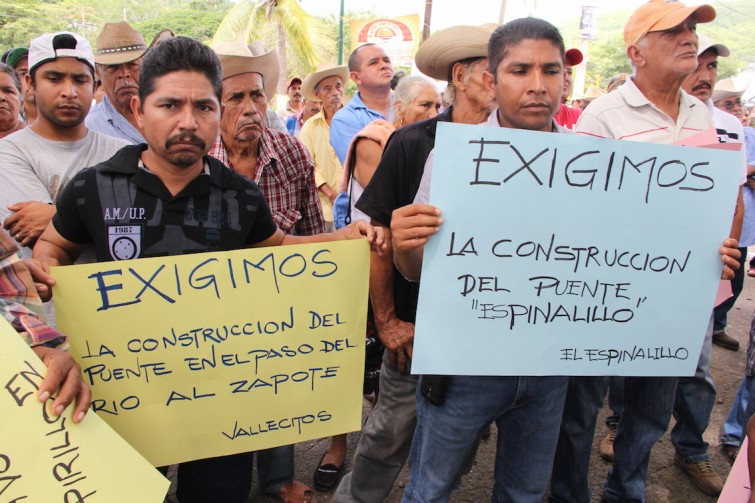 EXIGIMOS
LA CONSTRUCCION DEL
PUENTE EN EL PASO DEL
RIO AL ZAPOTE
VALLECITOS
EXIGIMOS
LA CONSTRUCCION
DEL PUENTE
"ESPINALILLO"
EL ESPINALILLO
A.M./U.P.
1987
EN